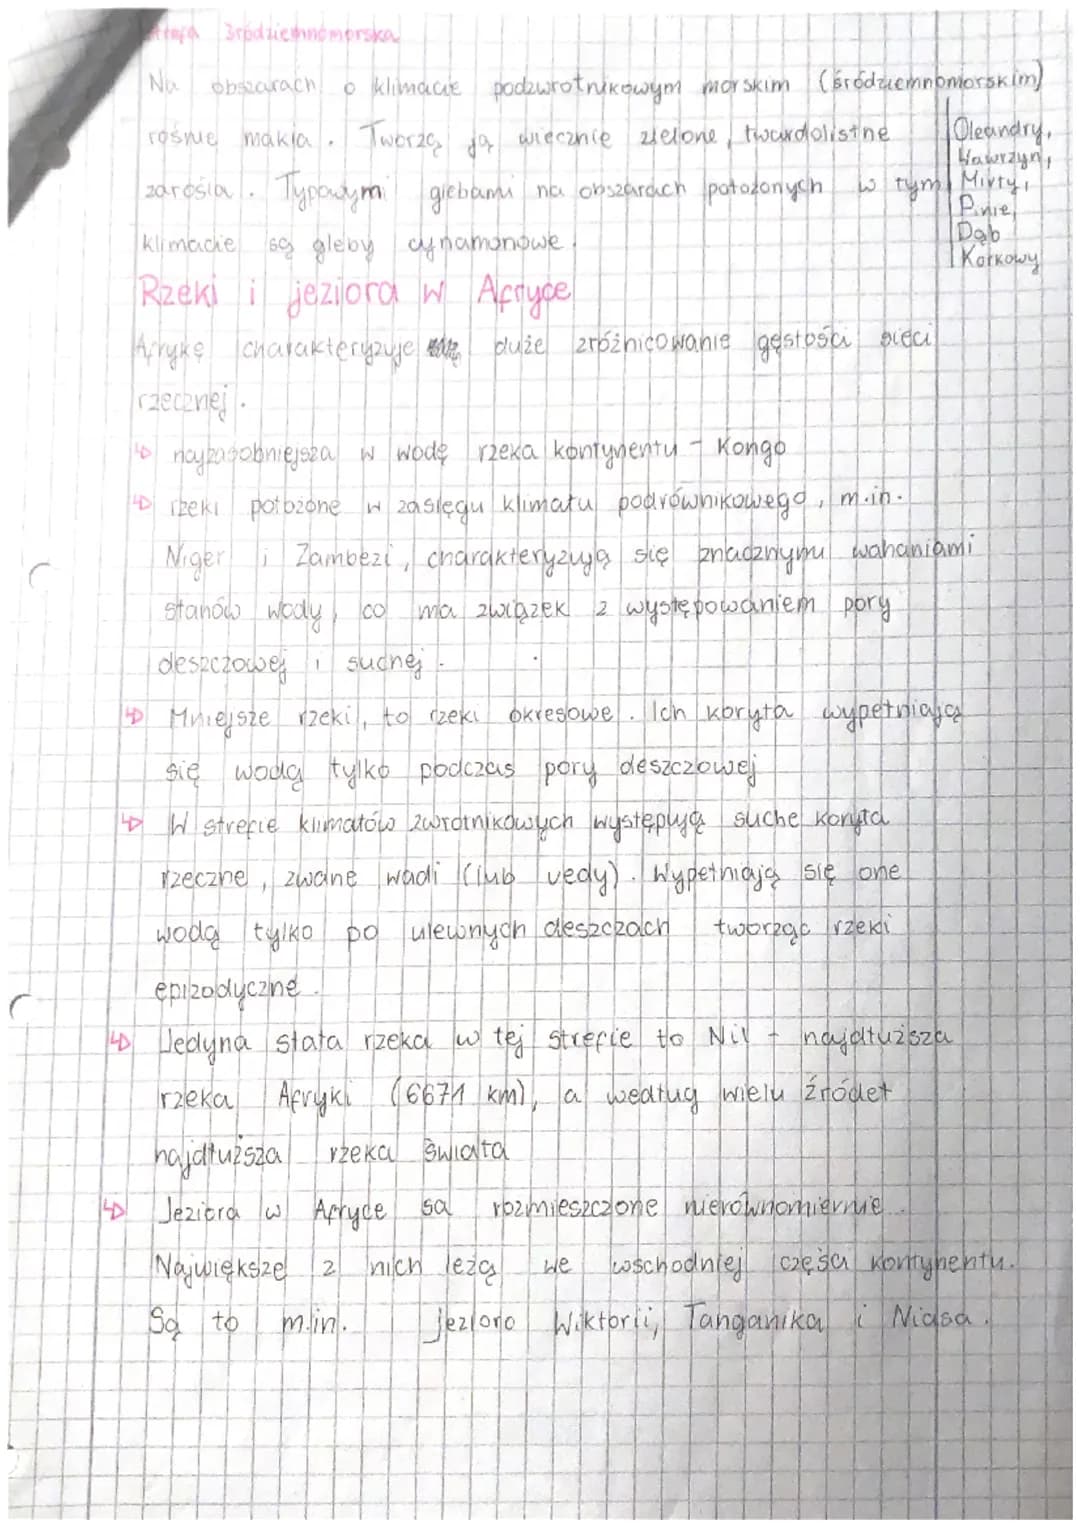 Strefa Śródziemnomorska
Na obszarach o klimacie podzwrotnikowym morskim (śródziemnomorskim)
rośnie makia. Tworzą ją wiecznie zielone, twardolistne
zarośla. Typowymi glebami na obszarach położonych w tym
klimacie są gleby cynamonowe.
Oleandry,
Wawrzyn,
Mirty,
Pinie,
Dąb
Korkowy
Rzeki i jeziora w Afryce
Afrykę charakteryzuje duże zróżnicowanie gęstości sieci
rzecznej.
najzasobniejsza w wodę rzeka kontynentu - Kongo
rzeki położone w zasięgu klimatu podrównikowego, m.in.
Niger i Zambezi, charakteryzują się znacznymi wahaniami
stanów wody, co ma związek z występowaniem pory
deszczowej i suchej.
Mniejsze rzeki, to rzeki okresowe. Ich koryta wypełniają
się wodą tylko podczas pory deszczowej
W strefie klimatów zwrotnikowych występują suche koryta
rzeczne, zwane wadi (lub uedy). Wypełniają się one
wodą tylko po ulewnych deszczach tworząc rzeki
epizodyczne.
Jedyna stała rzeka w tej strefie to Nil - najdłuższa
rzeka Afryki (6671 km), a według wielu źródeł
najdłuższa rzeka świata
Jeziora w Afryce sa rozmieszczone nierównomiernie.
Największe z nich leżą we wschodniej części kontynentu.
Są to m.in. Jezioro Wiktorii, Tanganika i Niasa.